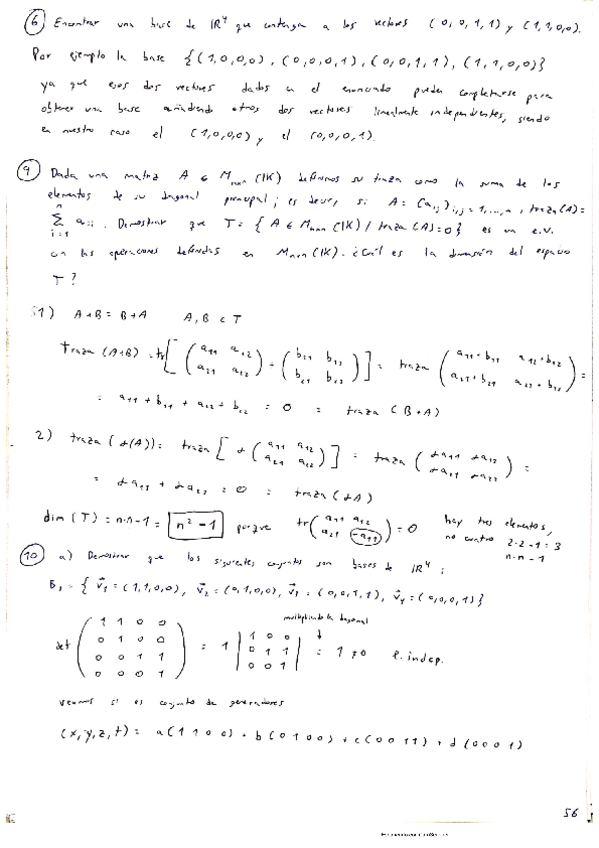 6 Encontrar una base de IR⁴ que contenga a los vectores (0,0,1,1) y (1,1,0,0).
Por ejemplo la base {(1,0,0,0), (0,0,0,1), (0,0,1,1), (1,1,0,0)}
ya que esos dos vectores dados en el enunciado pueden completarse para
obtener una base añadiendo otros dos vectores linealmente independientes, siendo
en nuestro caso el (1,0,0,0) y el (0,0,0,1).
9 Dada una matriz A ∈ Mnxn (IK) definimos su traza como la suma de los
elementos de su diagonal principal; es decir, si A = (aij) i,j=1,...,n, traza(A)=
∑ⁿᵢ₌₁ aii. Demostrar que T = { A ∈ Mnxn(IK) / traza(A)=0} es un e.v.
con las operaciones definidas en Mnxn(IK). ¿Cuál es la dimensión del espacio
T?
1) A+B = B+A A,B ∈ T
traza (A+B) = tr[(a11 a12 / a21 a22) + (b11 b12 / b21 b22)] = traza (a11+b11 a12+b12 / a21+b21 a22+b22) =
= a11 + b11 + a22 + b22 = 0 = traza (B+A)
2) traza (α(A)) = traza [α (a11 a12 / a21 a22)] = traza (αa11 αa12 / αa21 αa22) =
= αa11 + αa22 = 0 = traza (αA)
dim (T) = n·n-1 = n²-1 porque tr(a11 a12 / a21 -a11) = 0 hay tres elementos,
no cuatro 2·2-1 = 3
n·n-1
10 a) Demostrar que los siguientes conjuntos son bases de IR⁴:
B₁ = { v₁ = (1,1,0,0), v₂ = (0,1,0,0), v₃ = (0,0,1,1), v₄ = (0,0,0,1)}
multiplicando la diagonal
det (1 1 0 0 / 0 1 0 0 / 0 0 1 1 / 0 0 0 1) = 1 |1 0 0 / 0 1 1 / 0 0 1| = 1 ≠ 0 l. indep.
veamos si es conjunto de generadores
(x,y,z,t) = a(1 1 0 0) + b(0 1 0 0) + c(0 0 1 1) + d(0 0 0 1)
56